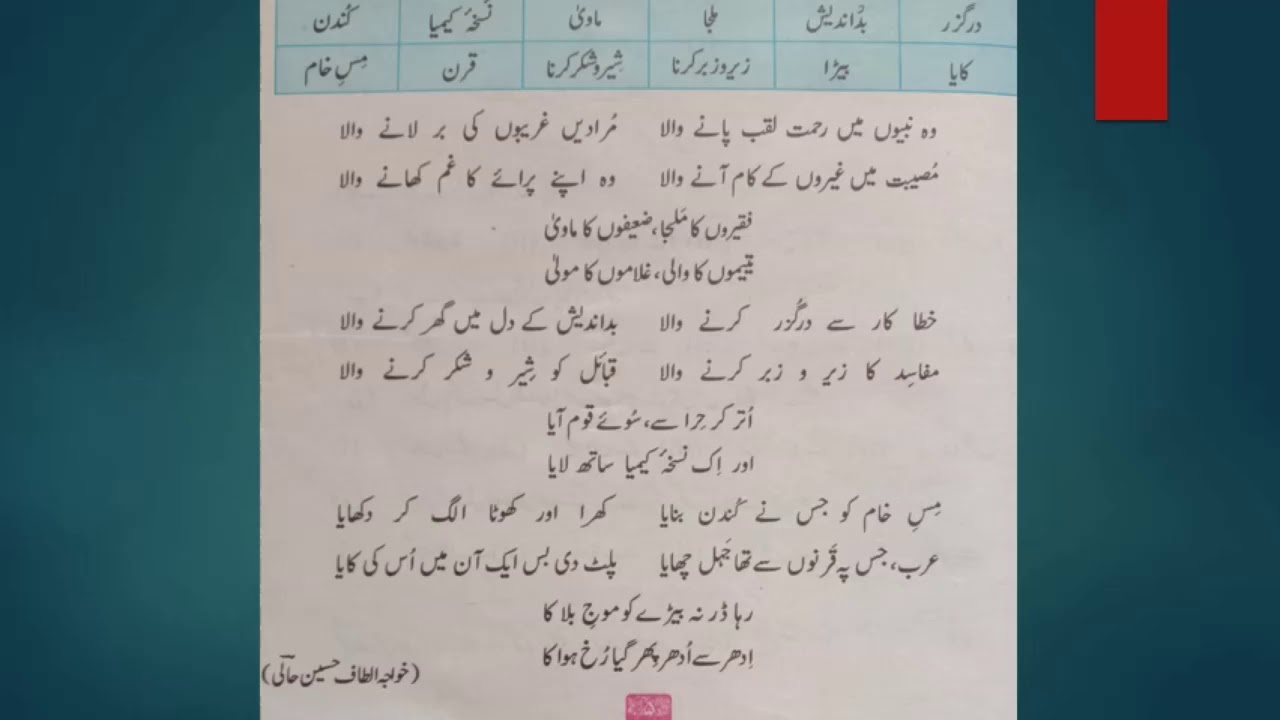 درگزر بدُاندیش ملجا ماویٰ نسخۂ کیمیا کُندن
کایا بیڑا زیر و زبر کرنا شِیر و شکر کرنا قرن مِسِ خام
وہ نبیوں میں رحمت لقب پانے والا مُرادیں غریبوں کی بر لانے والا
مُصیبت میں غیروں کے کام آنے والا وہ اپنے پرائے کا غم کھانے والا
فقیروں کا مَلجا، ضعیفوں کا ماویٰ
یتیموں کا والی، غلاموں کا مولیٰ
خطا کار سے درگُزر کرنے والا بداندیش کے دل میں گھر کرنے والا
مفاسِد کا زیر و زبر کرنے والا قبائل کو شِیر و شکر کرنے والا
اُتر کر حِرا سے، سُوئے قوم آیا
اور اِک نسخۂ کیمیا ساتھ لایا
مِسِ خام کو جس نے کُندن بنایا کھرا اور کھوٹا الگ کر دکھایا
عرب، جس پہ قَرنوں سے تھا جَہل چھایا پلٹ دی بس ایک آن میں اُس کی کایا
رہا ڈر نہ بیڑے کو موجِ بلا کا
اِدھر سے اُدھر پِھر گیا رُخ ہوا کا
(خواجہ الطاف حسین حالؔی)
۵